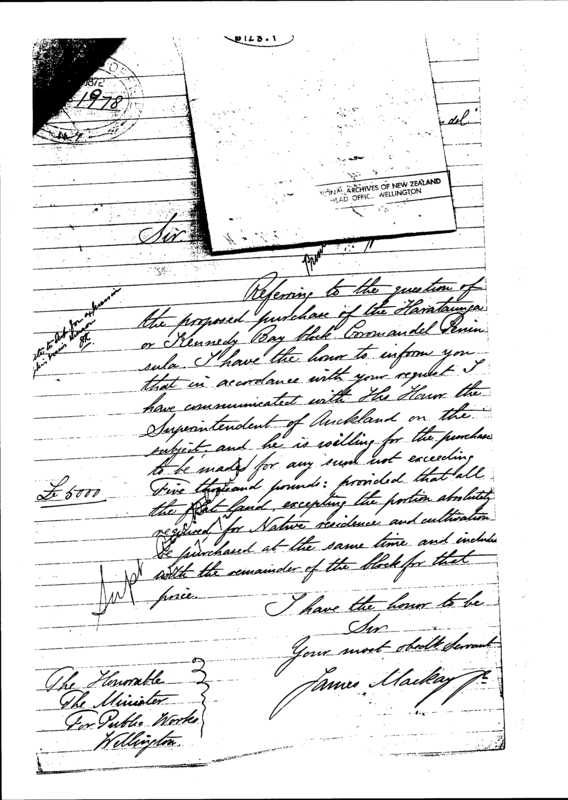 B128.1
1872
1978
del"
NATIONAL ARCHIVES OF NEW ZEALAND
HEAD OFFICE, WELLINGTON
Sir
Referring to the question of
the proposed purchase of the Harataunga
or Kennedy Bay block Coromandel Penin
sula. I have the honor to inform you
that in accordance with your request I
have communicated with His Honor the
Superintendent of Auckland on the
subject, and he is willing for the purchase
to be made for any sum not exceeding
£5000
Five thousand pounds: provided that all
the flat land, excepting the portion absolutely
required for Native residence and cultivation
be purchased at the same time and included
with the remainder of the block for that
price.
Supt
I have the honor to be
Sir
Your most obedt Servant
James Mackay Jr
The Honorable
The Minister
For Public Works
Wellington.